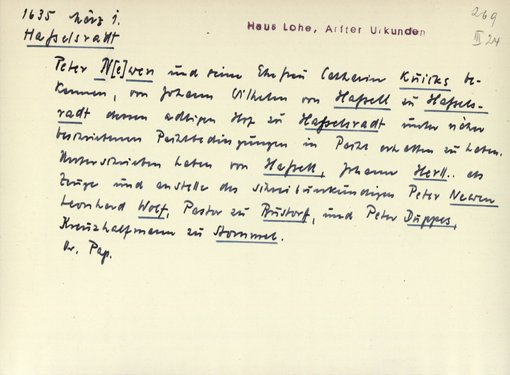 1635 März 1.
Hasselsradt
Haus Lohe, Arfter Urkunden
269
III 24
Peter N[e]wen und seine Ehefrau Catharin Knicks be-
kennen, von Johann Wilhelm von Hassell zu Hassels-
radt dessen adligen Hof zu Hasselsradt unter näher
beschriebenen Pachtbedingungen in Pacht erhalten zu haben.
Unterschrieben haben von Hassell, Johann Herll.. als
Zeuge und anstelle des schreibunkundigen Peter Newen
Leonhard Wolf, Pastor zu Rustorf, und Peter Duppes,
Kreuzhalfmann zu Stommel.
Or. Pap.